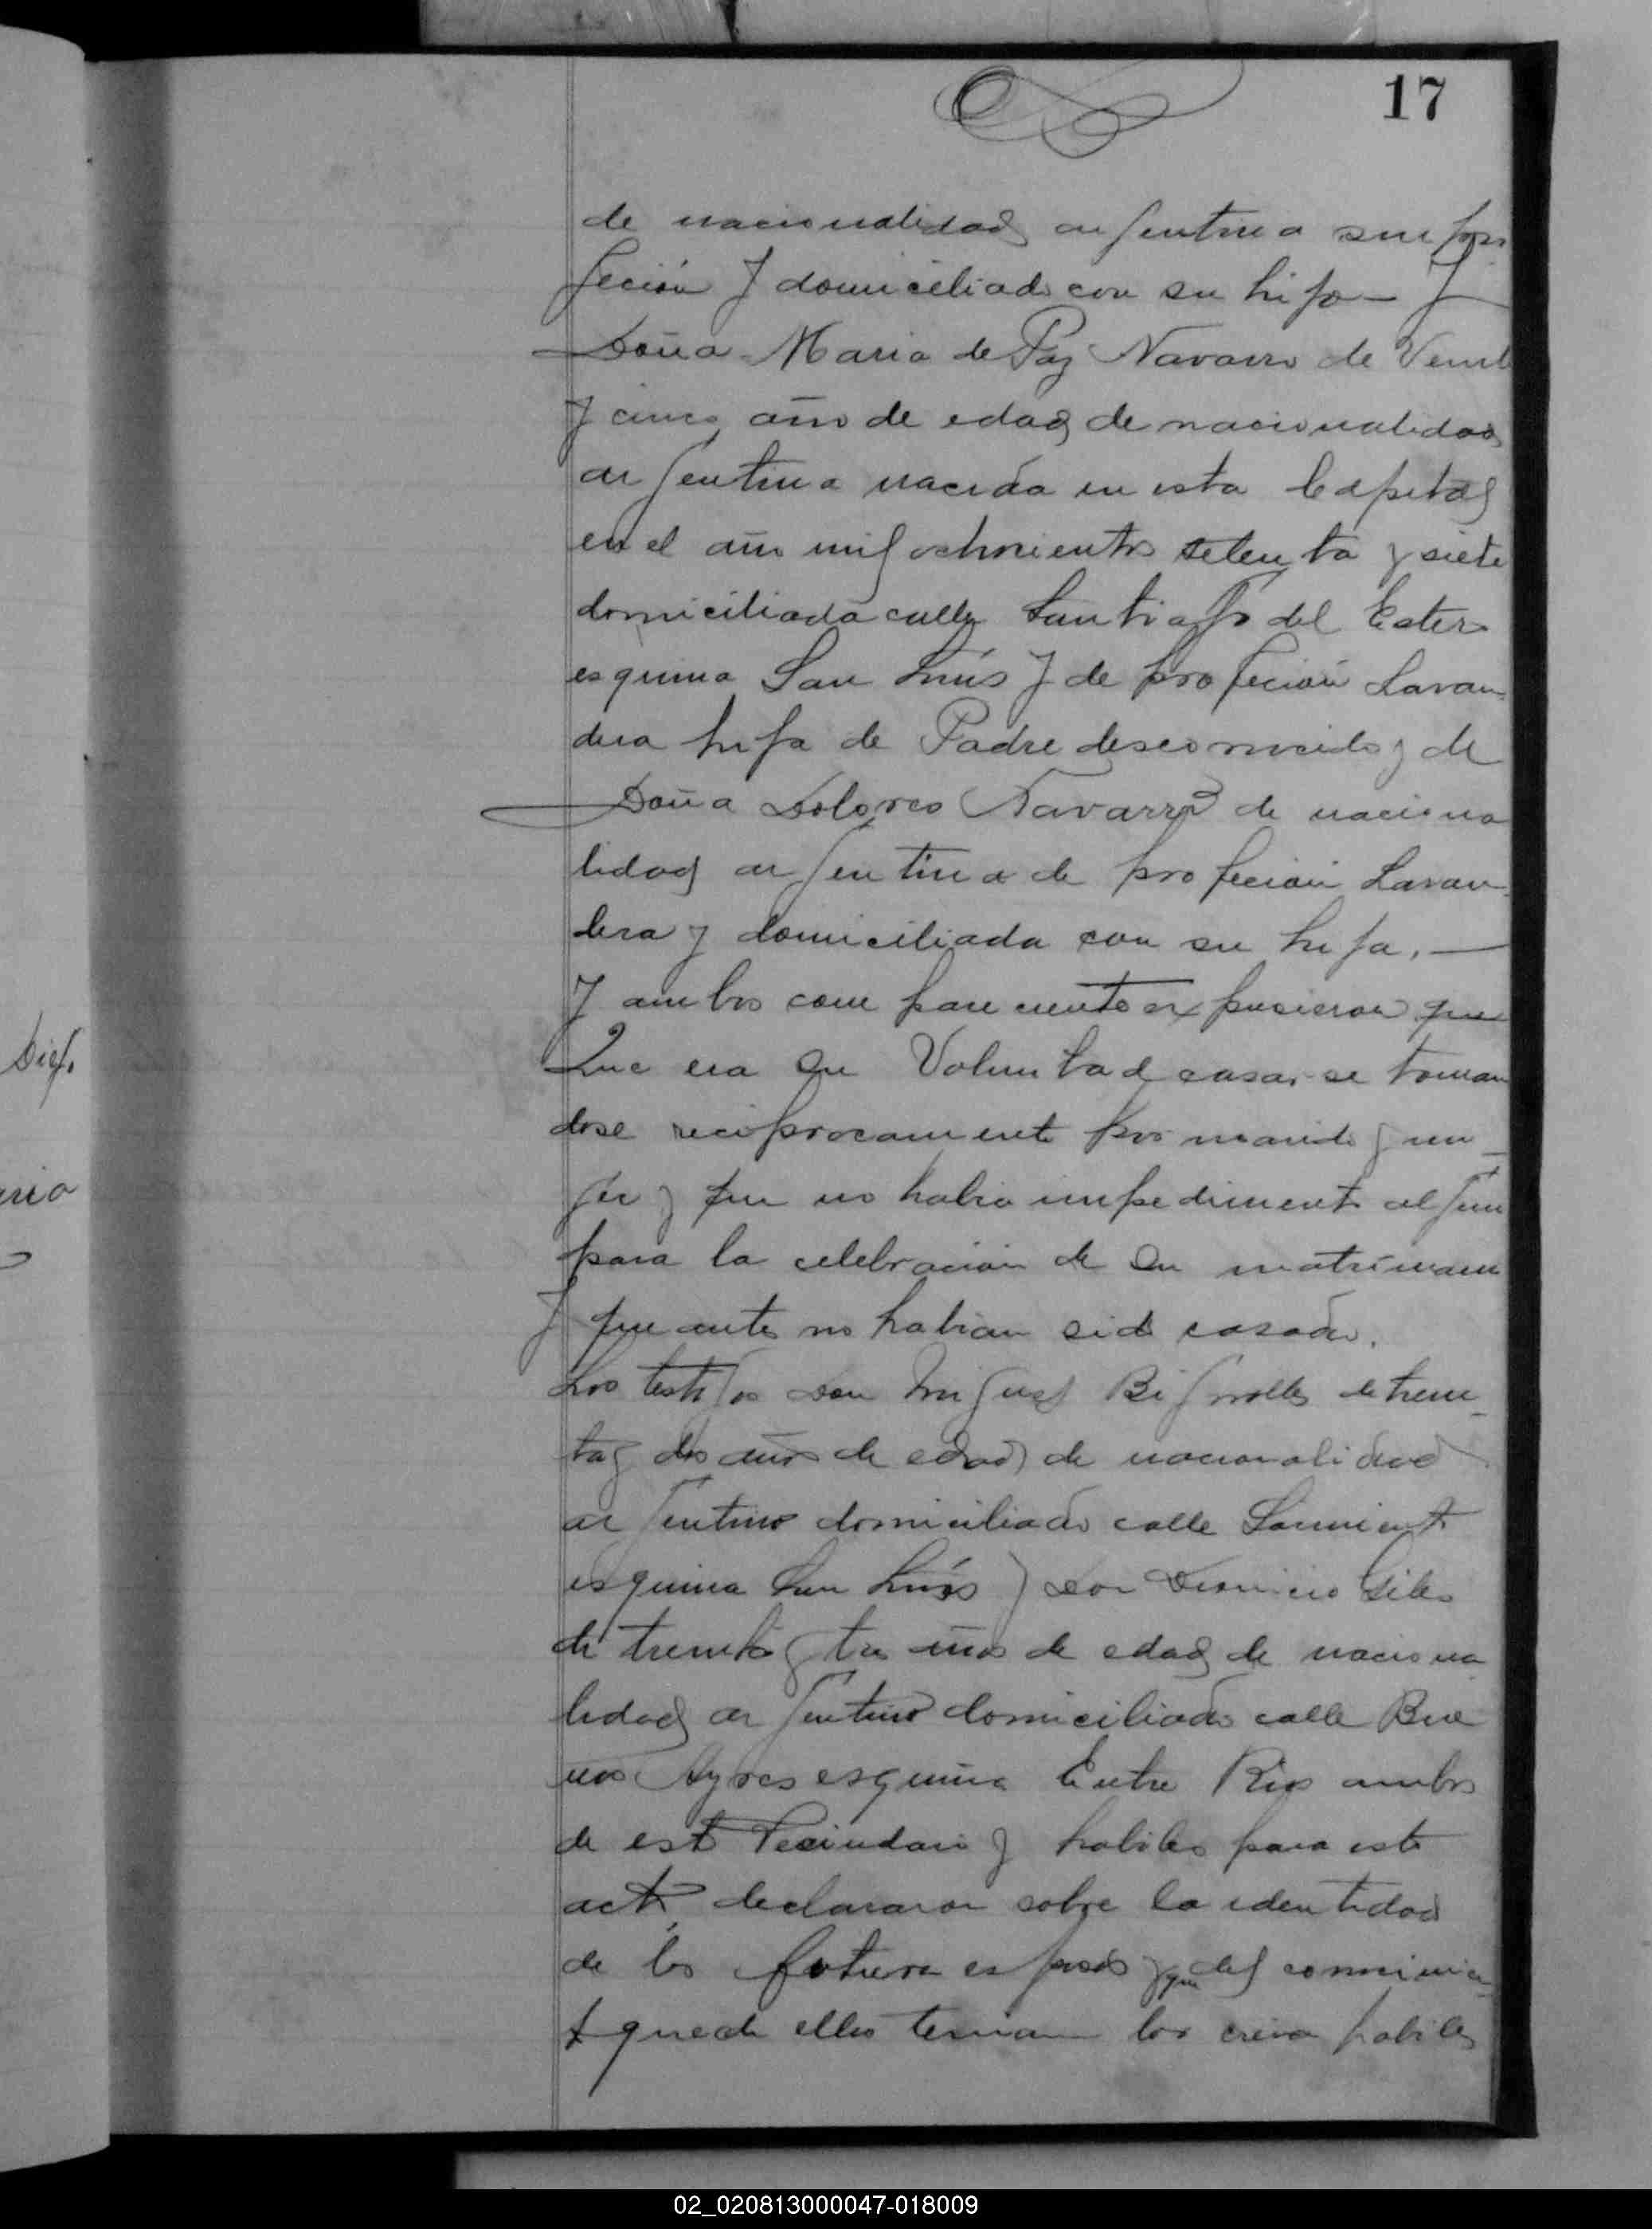 17
de nacionalidad argentina sin pro
fecion y domiciliado con su hijo — y
Doña Maria de Paz Navarro de Veinte
y cinco año de edad de nacionalidad
argentina nacida en esta Capital
en el año mil ochocientos setenta y siete
domiciliada calle Santiago del Estero
esquina San Luis y de profecion Lavan
dera hija de Padre desconocido y de
Doña Dolores Navarro de naciona
lidad argentina de profecion Lavan
dera y domiciliada con su hija. —
Y ambos comparecientes expusieron que
Que era su Voluntad casarse toman
dose reciprocamente por marido y mu
jer y que no habia impedimento algun
para la celebracion de su matrimoni
y que antes no habian sido casados.
Los testigos Don Miguel de trein
ta y dos años de edad de nacionalidad
argentino domiciliado calle Sarmiento
esquina San Luis y Don Dionicio
de treinta y tres años de edad de naciona
lidad argentino domiciliado calle Bue
nos Ayres esquina Entre Rios ambos
de este Vecindario y habiles para este
acto declararon sobre la identidad
de los futuros esposos y que del conocimien
to que de ellos tenian los creian habiles
Dief.
ario
02_020813000047-018009